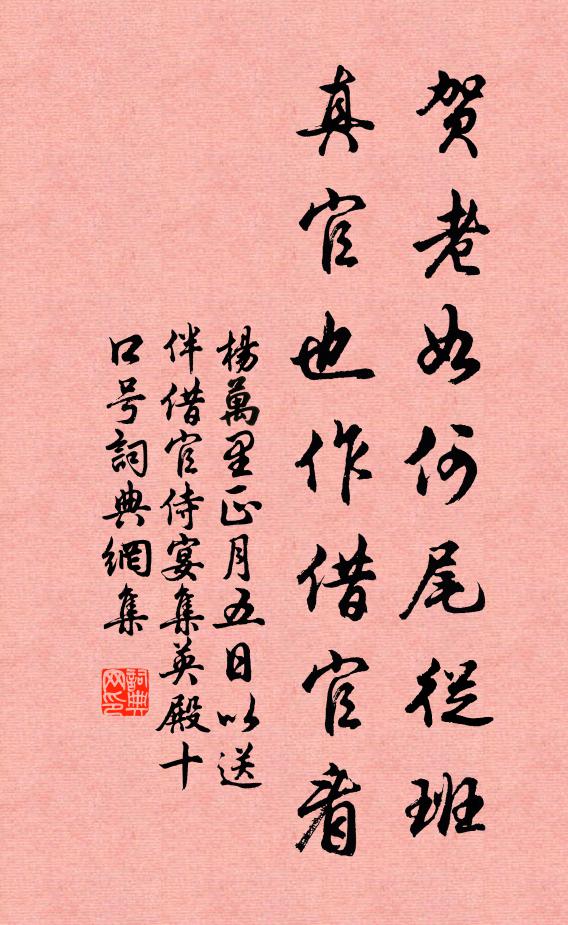 贺老如何尾從班
真官也作借官看
楊萬里正月五日以送
伴借官侍宴集英殿十
口号詞典網集
詞典
网印